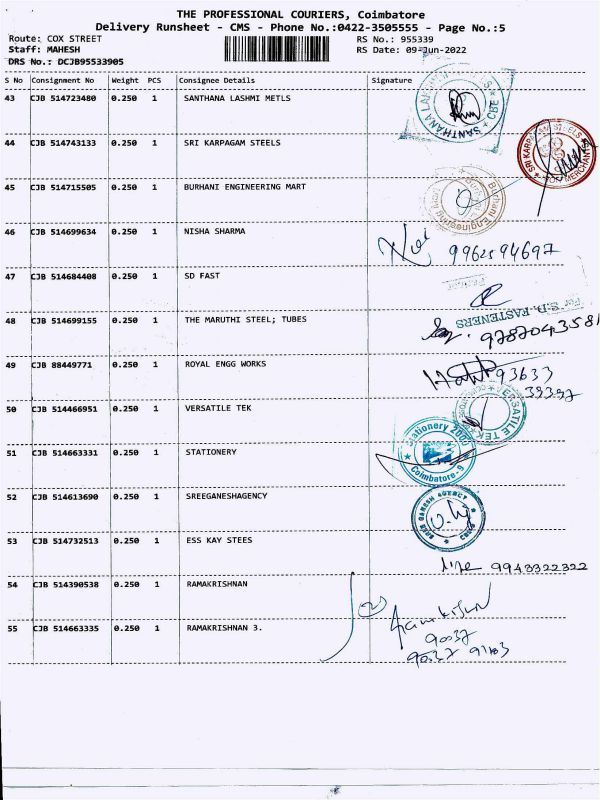 THE PROFESSIONAL COURIERS, Coimbatore
Delivery Runsheet - CMS - Phone No.:0422-3505555 - Page No.:5
Route: COX STREET RS No.: 955339
Staff: MAHESH RS Date: 09-Jun-2022
DRS No.: DCJB95533905
S No Consignment No Weight PCS Consignee Details Signature
43 CJB 514723480 0.250 1 SANTHANA LASHMI METLS
SANTHANA CBE
44 CJB 514743133 0.250 1 SRI KARPAGAM STEELS
SRI KARPAGAM STEELS
45 CJB 514715505 0.250 1 BURHANI ENGINEERING MART
Burhani Engineering
46 CJB 514699634 0.250 1 NISHA SHARMA
9962594697
47 CJB 514684408 0.250 1 SD FAST
For S.D. FASTENERS
48 CJB 514699155 0.250 1 THE MARUTHI STEEL; TUBES
9787043581
49 CJB 88449771 0.250 1 ROYAL ENGG WORKS
93633
39397
50 CJB 514466951 0.250 1 VERSATILE TEK
VERSATILE TEK
51 CJB 514663331 0.250 1 STATIONERY
Stationery 2000
Coimbatore-9
52 CJB 514613690 0.250 1 SREEGANESHAGENCY
SREE GANESH AGENCY
53 CJB 514732513 0.250 1 ESS KAY STEES
9943322322
54 CJB 514390538 0.250 1 RAMAKRISHNAN
Ramakrishnan
90037
55 CJB 514663335 0.250 1 RAMAKRISHNAN 3.
90037 91103